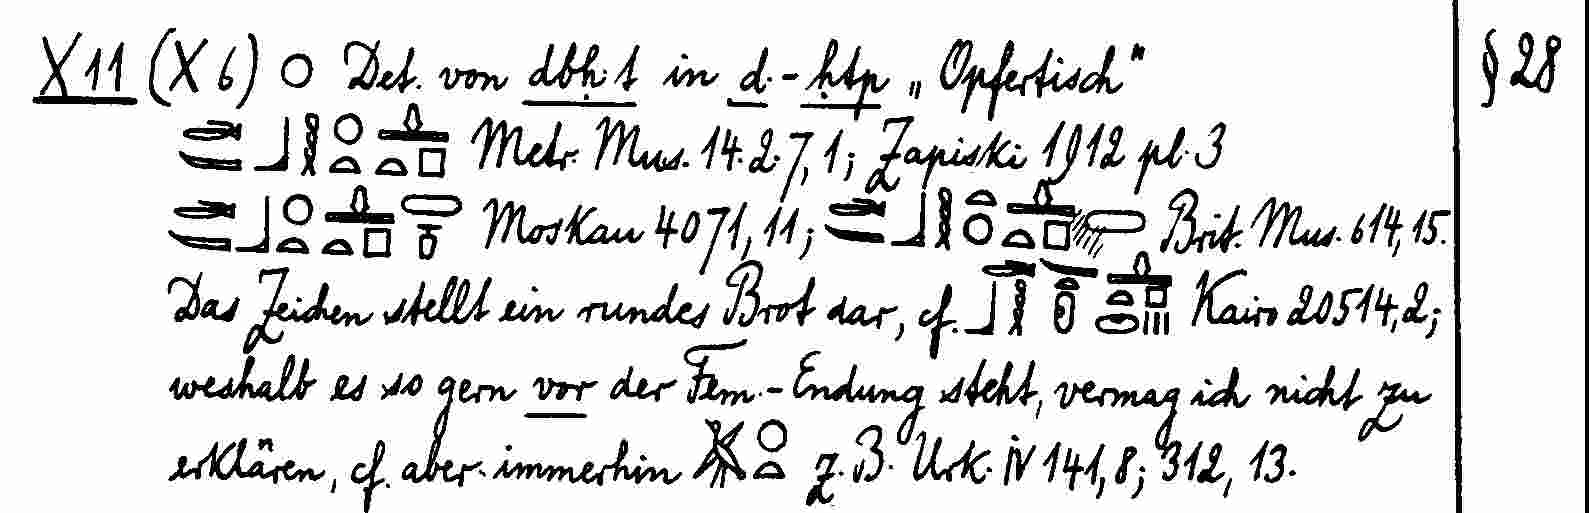 X11 (X6) ○ Det. von dbḥ.t in d.-ḥtp „Opfertisch“ § 28
Metr. Mus. 14.2.7,1; Zapiski 1912 pl. 3
Moskau 4071,11; Brit. Mus. 614,15.
Das Zeichen stellt ein rundes Brot dar, cf. Kairo 20514,2;
weshalb es so gern vor der Fem.-Endung steht, vermag ich nicht zu
erklären, cf. aber immerhin z.B. Urk. IV 141,8; 312,13.